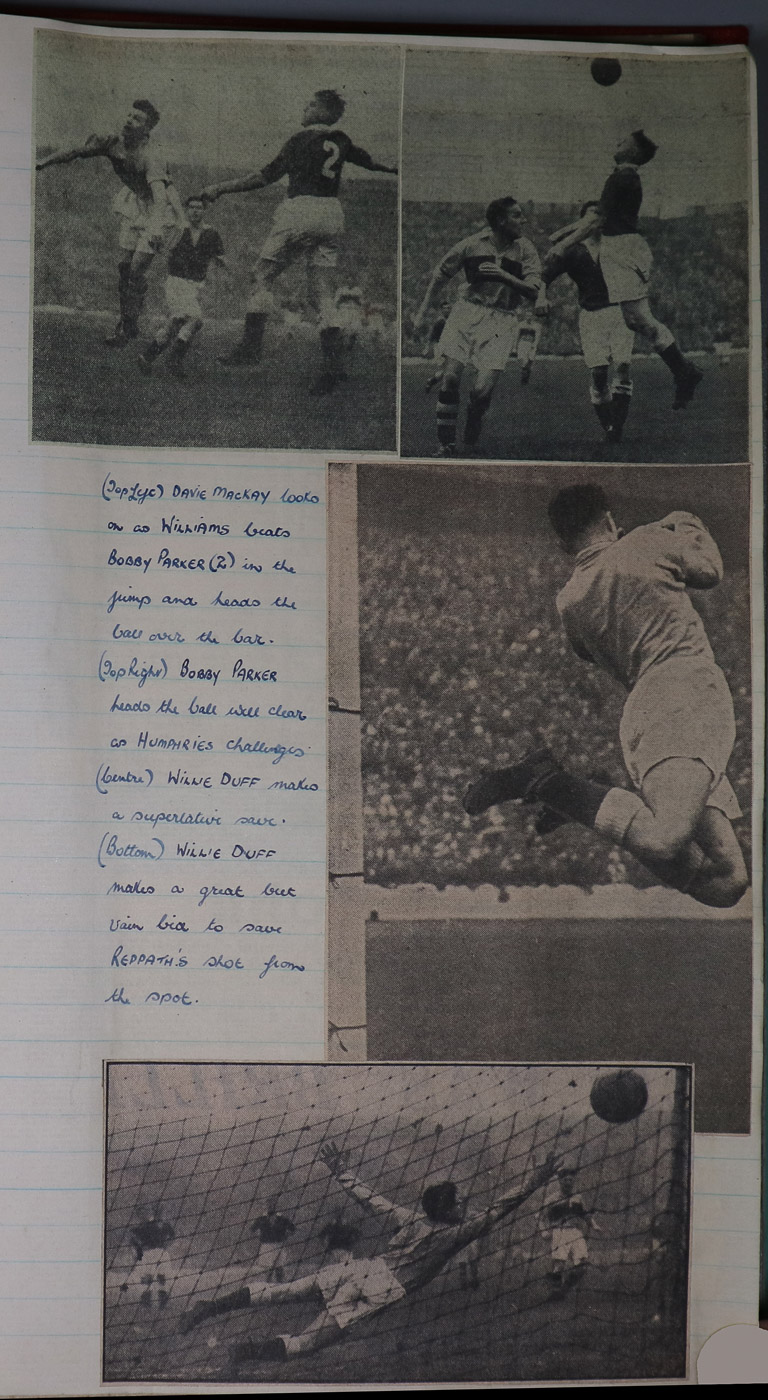 2
(Top Left) DAVIE MACKAY looks
on as WILLIAMS beats
BOBBY PARKER (2) in the
jump and heads the
ball over the bar.
(Top Right) BOBBY PARKER
heads the ball well clear
as HUMPHRIES challenges.
(Centre) WILLIE DUFF makes
a superlative save.
(Bottom) WILLIE DUFF
makes a great but
vain bid to save
REPPATH'S shot from
the spot.